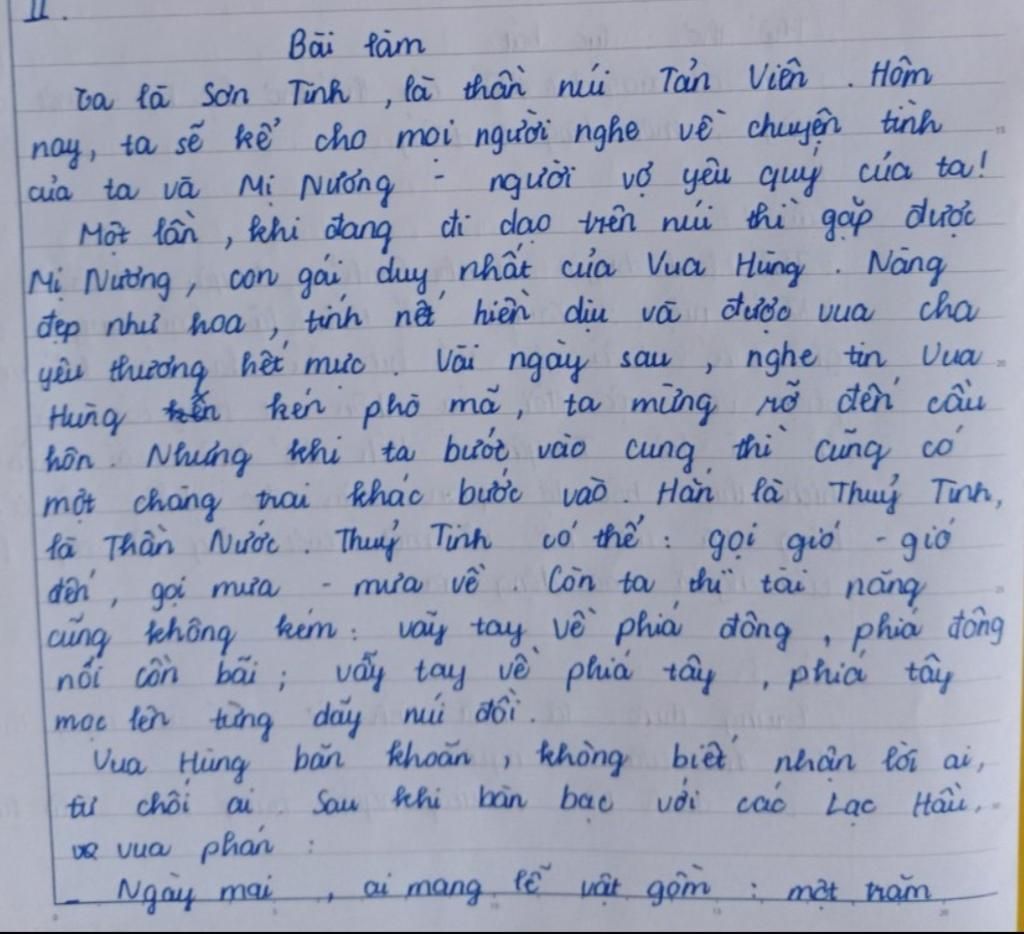 II.
Bài làm
Ta là Sơn Tinh, là thần núi Tản Viên. Hôm
nay, ta sẽ kể cho mọi người nghe về chuyện tình
của ta và Mị Nương - người vợ yêu quý của ta!
Một lần, khi đang đi dạo trên núi thì gặp được
Mị Nương, con gái duy nhất của Vua Hùng. Nàng
đẹp như hoa, tính nết hiền dịu và được vua cha
yêu thương hết mực. Vài ngày sau, nghe tin Vua
Hùng kén phò mã, ta mừng rỡ đến cầu
hôn. Nhưng khi ta bước vào cung thì cũng có
một chàng trai khác bước vào. Hắn là Thuỷ Tinh,
là Thần Nước. Thuỷ Tinh có thể: gọi gió - gió
đến, gọi mưa - mưa về. Còn ta thì tài năng
cũng không kém: vẫy tay về phía đông, phía đông
nổi cồn bãi; vẫy tay về phía tây, phía tây
mọc lên từng dãy núi đồi.
Vua Hùng băn khoăn, không biết nhận lời ai,
từ chối ai. Sau khi bàn bạc với các Lạc Hầu,
vua phán:
- Ngày mai, ai mang lễ vật gồm: một trăm